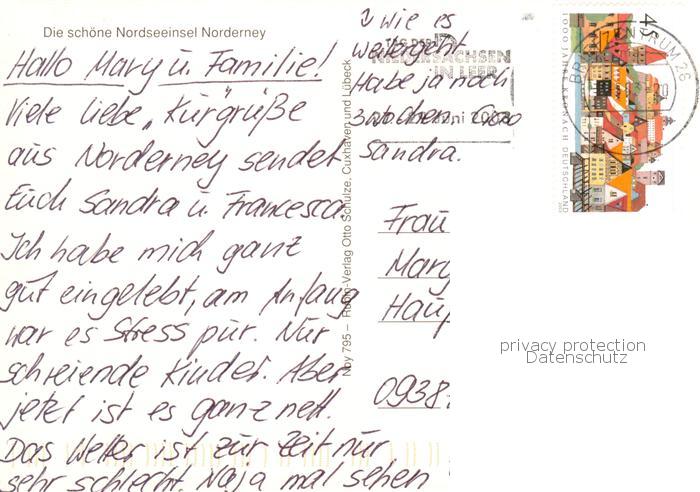 Die schöne Nordseeinsel Norderney
Hallo Mary u. Familie!
Viele liebe „Kurgrüße
aus Norderney sendet
Euch Sandra u. Francesca
Ich habe mich ganz
gut eingelebt, am Anfang
war es Stress pur. Nur
schreiende Kinder. Aber
jetzt ist es ganz nett.
Das Wetter ist zur Zeit nur
sehr schlecht. Naja mal sehen
wie es
weitergeht.
Habe ja noch
3 Wochen.
Sandra.
Nby 795 – Rubin-Verlag Otto Schulze, Cuxhaven und Lübeck
TAG DER
NIEDERSACHSEN
IN LEER
Juni
BRIEFZENTRUM 26
45
1000 JAHRE KRONACH DEUTSCHLAND
Frau
Mary
Haup
0938
privacy protection
Datenschutz